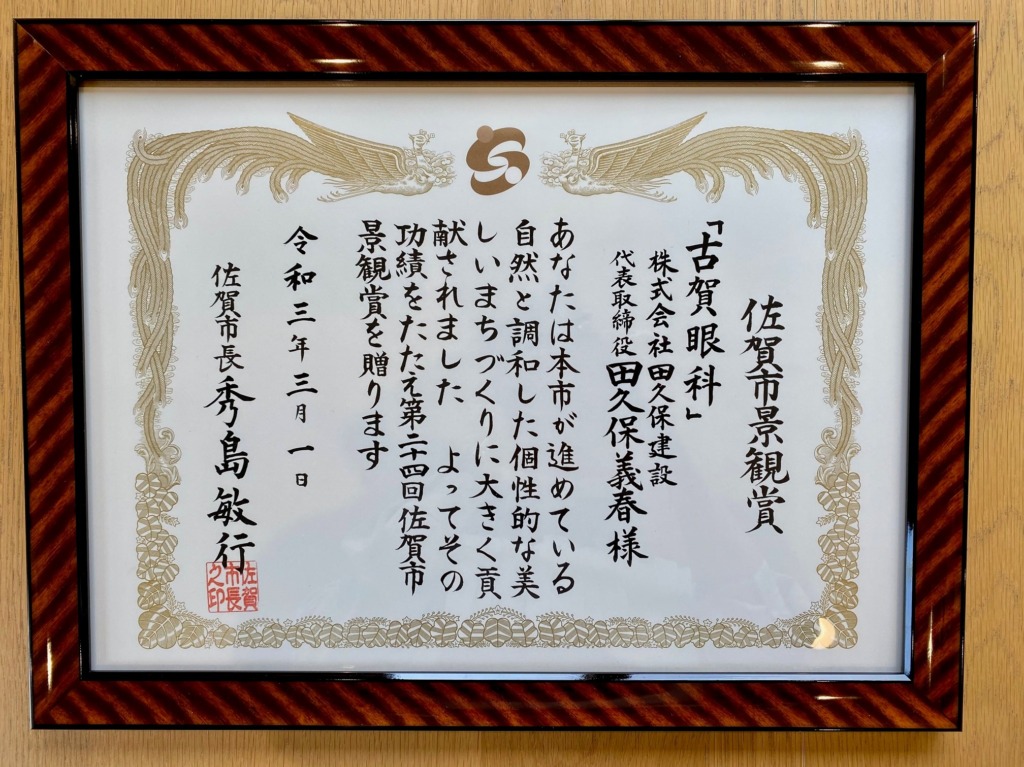 佐賀市景観賞
「古賀眼科」
株式会社田久保建設
代表取締役 田久保義春様
あなたは本市が進めている
自然と調和した個性的な美
しいまちづくりに大きく貢
献されました よってその
功績をたたえ第二十四回佐賀市
景観賞を贈ります
令和三年三月一日
佐賀市長 秀島敏行
佐賀
市長
之印